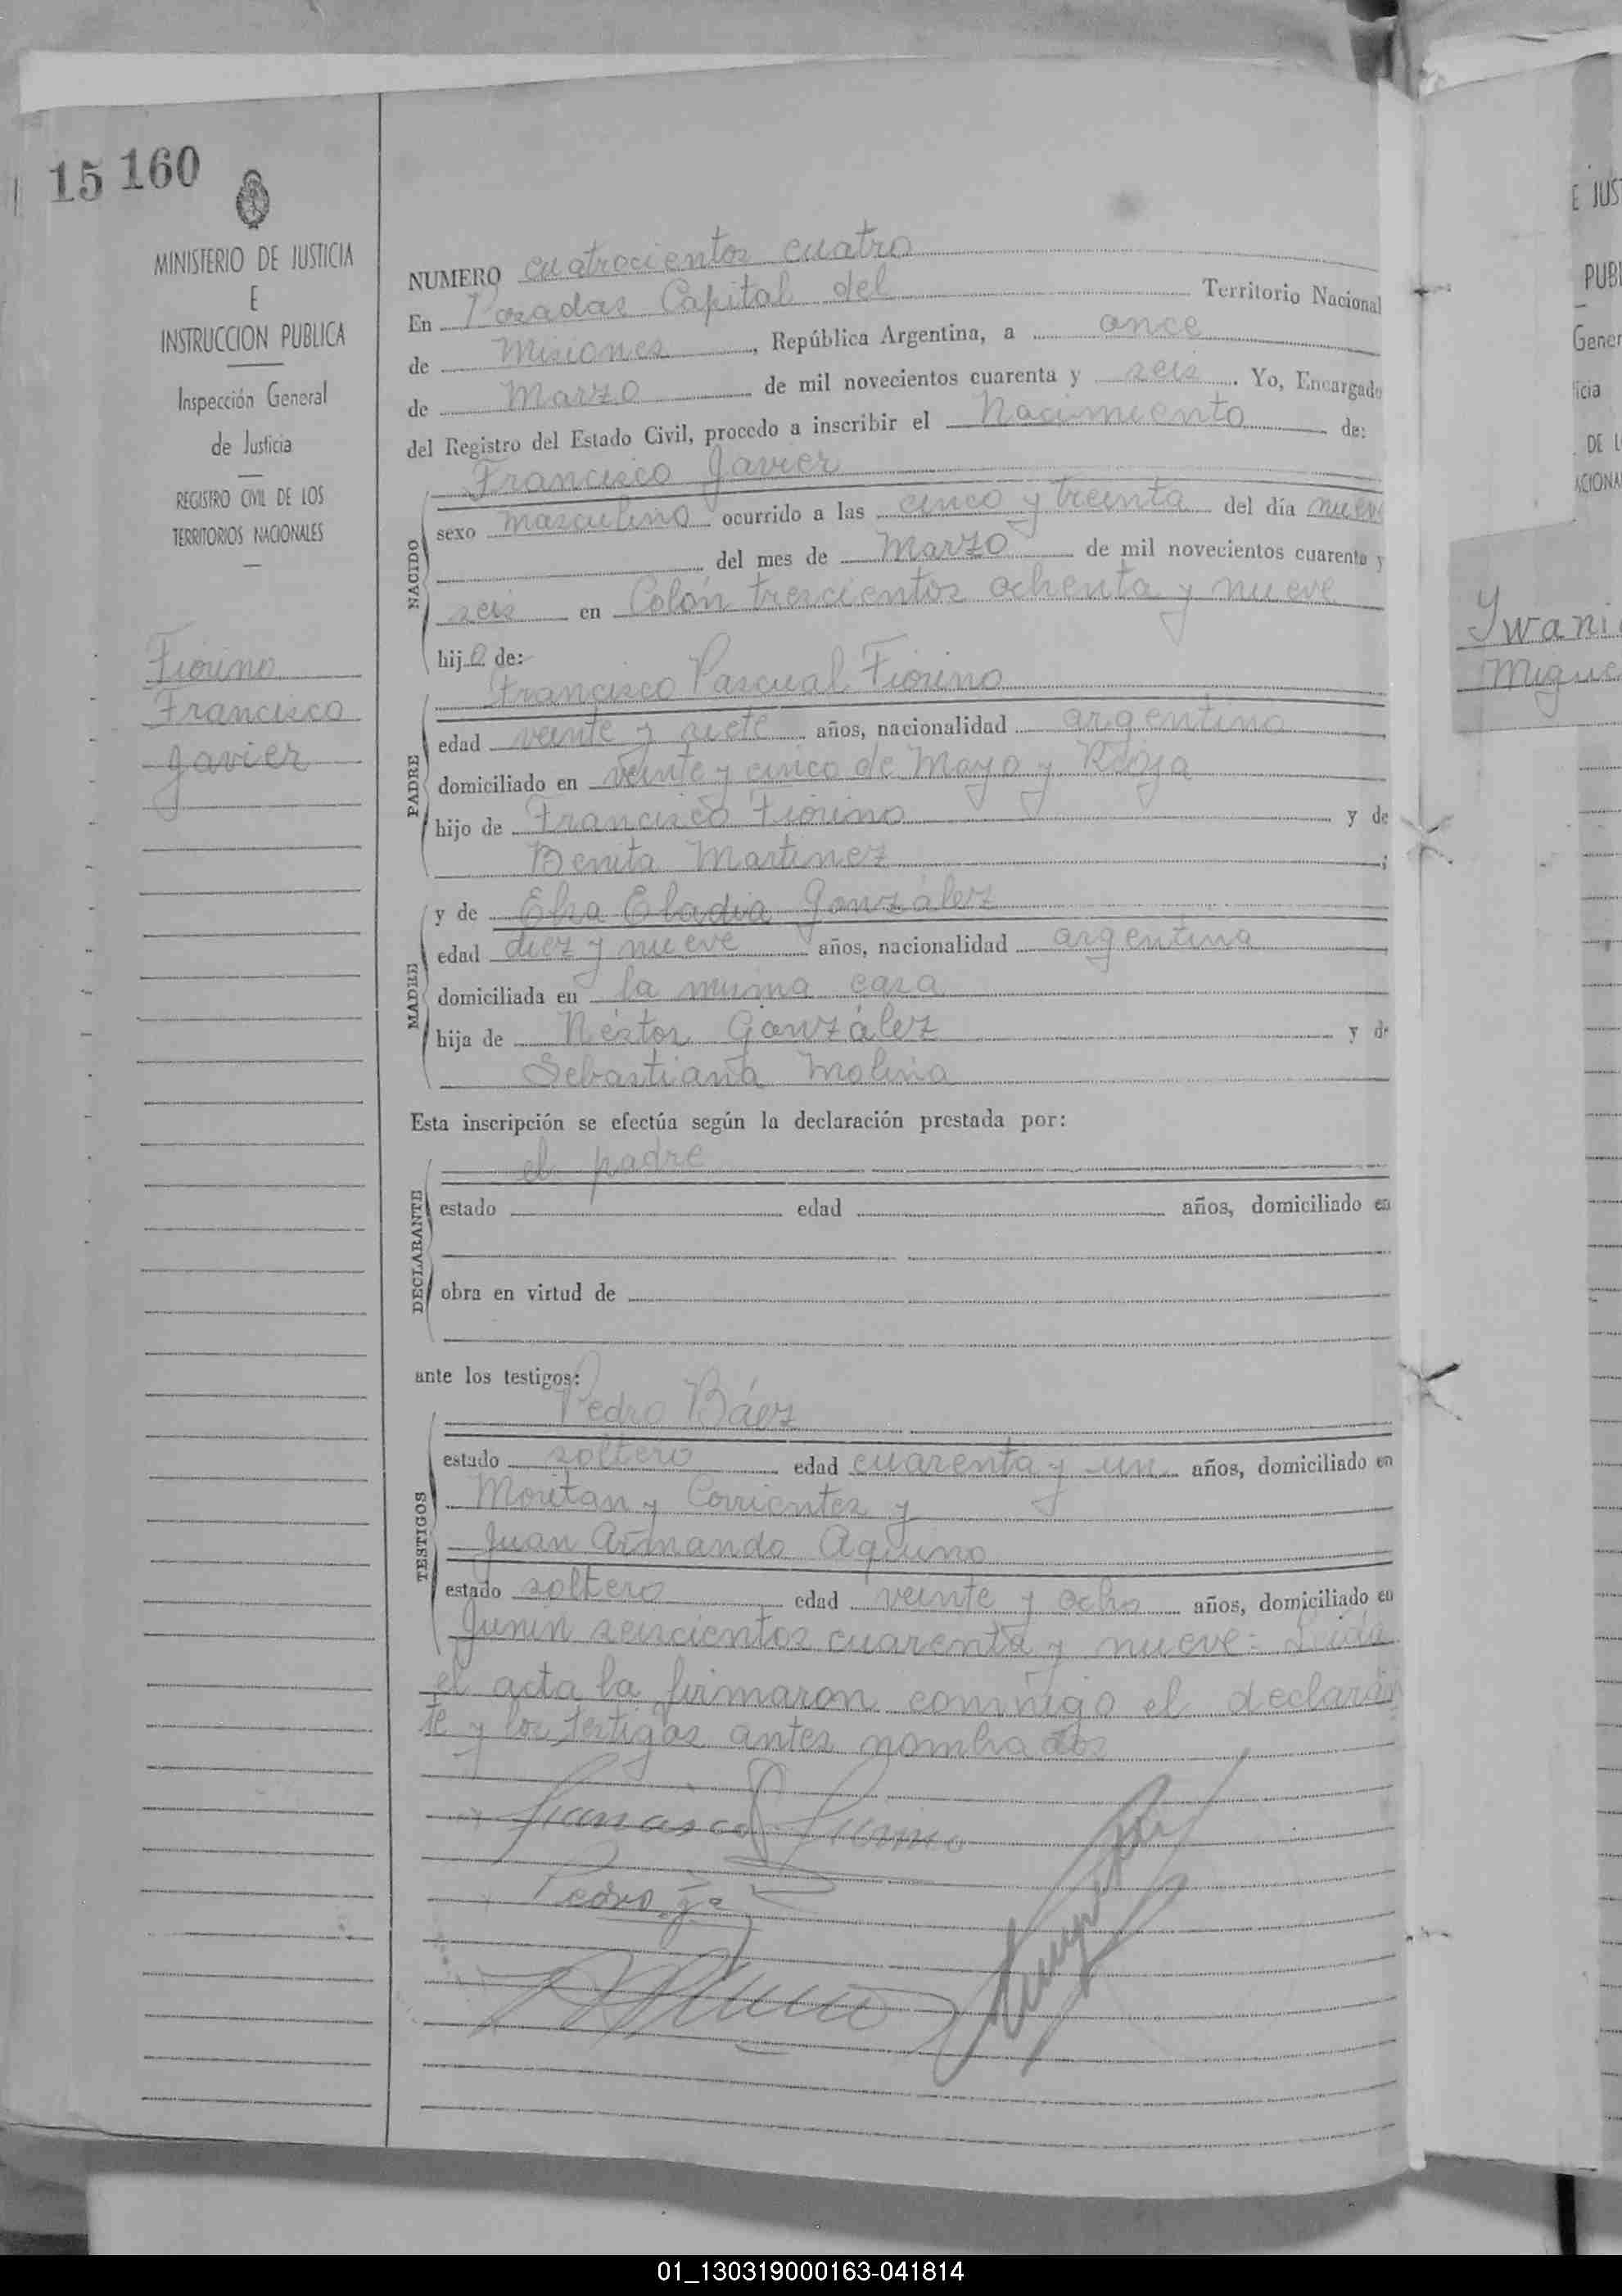 15 160
MINISTERIO DE JUSTICIA
E
INSTRUCCION PUBLICA
Inspección General
de Justicia
REGISTRO CIVIL DE LOS
TERRITORIOS NACIONALES
Fiorino
Francisco
Javier
NUMERO cuatrocientos cuatro
En Posadas Capital del Territorio Nacional
de Misiones, República Argentina, a once
de Marzo de mil novecientos cuarenta y seis. Yo, Encargado
del Registro del Estado Civil, procedo a inscribir el Nacimiento de:
Francisco Javier
NACIDO
sexo masculino ocurrido a las cinco y treinta del día nueve
del mes de Marzo de mil novecientos cuarenta y
seis en Colón trescientos ochenta y nueve
hijo de:
Francisco Pascual Fiorino
PADRE
edad veinte y siete años, nacionalidad argentino
domiciliado en veinte y cinco de Mayo y Rioja
hijo de Francisco Fiorino y de
Benita Martinez;
MADRE
y de Elsa Eladia González
edad diez y nueve años, nacionalidad argentina
domiciliada en la misma casa
hija de Néstor González y de
Sebastiana Molina
Esta inscripción se efectúa según la declaración prestada por:
el padre
DECLARANTE
estado edad años, domiciliado en
obra en virtud de
ante los testigos:
Pedro Báez
TESTIGOS
estado soltero edad cuarenta y un años, domiciliado en
Moritan y Corrientes y
Juan Armando Aquino
estado soltero edad veinte y ocho años, domiciliado en
Junin seiscientos cuarenta y nueve: Leída
el acta la firmaron conmigo el declaran
te y los testigos antes nombrados
Francisco P Fiorino
Pedro
E JUS
PUBL
Gener
icia
DE L
ACIONA
Iwani
Migue
01_130319000163-041814